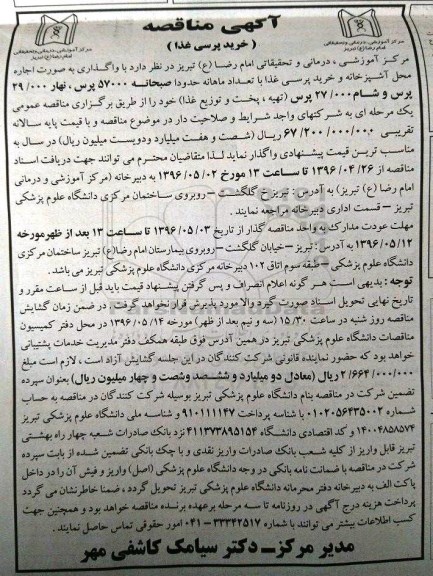 آگهی مناقصه
( خرید پرسی غذا )
مرکز آموزشی، درمانی و تحقیقاتی
امام رضا (ع) تبریز
مرکز آموزشی، درمانی و تحقیقاتی
امام رضا (ع) تبریز
مرکز آموزشی، درمانی و تحقیقاتی امام رضا (ع) تبریز در نظر دارد با واگذاری به صورت اجاره
محل آشپزخانه و خرید پرسی غذا با تعداد ماهانه حدودا صبحانه ۵۷۰۰۰ پرس، نهار ۲۹/۰۰۰
پرس و شام ۲۷/۰۰۰ پرس (تهیه ، پخت و توزیع غذا) خود را از طریق برگزاری مناقصه عمومی
یک مرحله ای به شرکتهای واجد شرایط و صلاحیت دار در موضوع مناقصه و با قیمت پایه سالانه
تقریبی ۶۷/۲۰۰/۰۰۰/۰۰۰ ریال (شصت و هفت میلیارد ودویست میلیون ریال) در سال به
مناسب ترین قیمت پیشنهادی واگذار نماید لذا متقاضیان محترم می توانند جهت دریافت اسناد
مناقصه از ۱۳۹۶/۰۴/۲۶ تا ساعت ۱۳ مورخ ۱۳۹۶/۰۵/۰۲ به دبیرخانه (مرکز آموزشی و درمانی
امام رضا (ع) تبریز) به آدرس: تبریز – گلگشت – روبروی ساختمان مرکزی دانشگاه علوم پزشکی
تبریز – قسمت اداری دبیرخانه مراجعه نمایند .
مهلت عودت مدارک به واحد مناقصه گذار از تاریخ ۱۳۹۶/۰۵/۰۳ تا ساعت ۱۳ بعد از ظهر مورخه
۱۳۹۶/۰۵/۱۲ به آدرس : تبریز – خیابان گلگشت – روبروی بیمارستان امام رضا(ع) تبریز ساختمان مرکزی
دانشگاه علوم پزشکی – طبقه سوم اتاق ۱۰۲ دبیرخانه مرکزی دانشگاه علوم پزشکی تبریز می باشد.
توجه : بدیهی است هر گونه اعلام انصراف و پس گرفتن پیشنهاد قیمت باید قبل از ساعت مقرر و
تاریخ نهایی تحویل اسناد صورت گیرد والا مورد پذیرش قرار نخواهد گرفت . در ضمن زمان گشایش
مناقصه روز شنبه در ساعت ۱۵/۳۰ (سه و نیم بعد از ظهر) مورخه ۱۳۹۶/۰۵/۱۴ در محل دفتر کمیسیون
مناقصات دانشگاه علوم پزشکی تبریز در همین آدرس فوق طبقه همکف دفتر مدیریت خدمات پشتیبانی
خواهد بود که حضور نماینده قانونی شرکت کنندگان در این جلسه گشایش آزاد است ، لازم است مبلغ
۲/۶۶۴/۰۰۰/۰۰۰ ریال (معادل دو میلیارد و ششصد وشصت و چهار میلیون ریال) بعنوان سپرده
تضمین شرکت در مناقصه بنام دانشگاه علوم پزشکی تبریز بوسیله شرکت کنندگان در مناقصه به حساب
شماره ۰۱۰۲۰۵۶۴۳۵۰۰۲ با شناسه پرداخت ۹۱۰۱۱۱۱۴۷ و شناسه ملی دانشگاه علوم پزشکی تبریز
۱۴۰۰۴۸۵۸۵۷۴ و کد اقتصادی دانشگاه ۴۱۱۳۷۳۸۹۵۱۵۴ نزد بانک صادرات شعبه چهار راه بهشتی
تبریز قابل واریز از کلیه شعب بانک صادرات واریز نقدی و یا چک بانکی تضمین شده از بابت سپرده
شرکت در مناقصه یا ضمانت نامه بانکی در وجه دانشگاه علوم پزشکی (اصل) واریز و فیش آن را در داخل
پاکت الف به دبیرخانه دفتر محرمانه دانشگاه علوم پزشکی تبریز تحویل گردد ، ضمنا خاطرنشان می گردد
پرداخت هزینه درج آگهی در روزنامه تا سه مرحله برعهده برنده مناقصه خواهد بود و همچنین جهت
کسب اطلاعات بیشتر می توانند با شماره ۳۳۳۴۲۵۱۷-۰۴۱ امور حقوقی تماس حاصل نمایند .
مدیر مرکز – دکتر سیامک کاشفی مهر